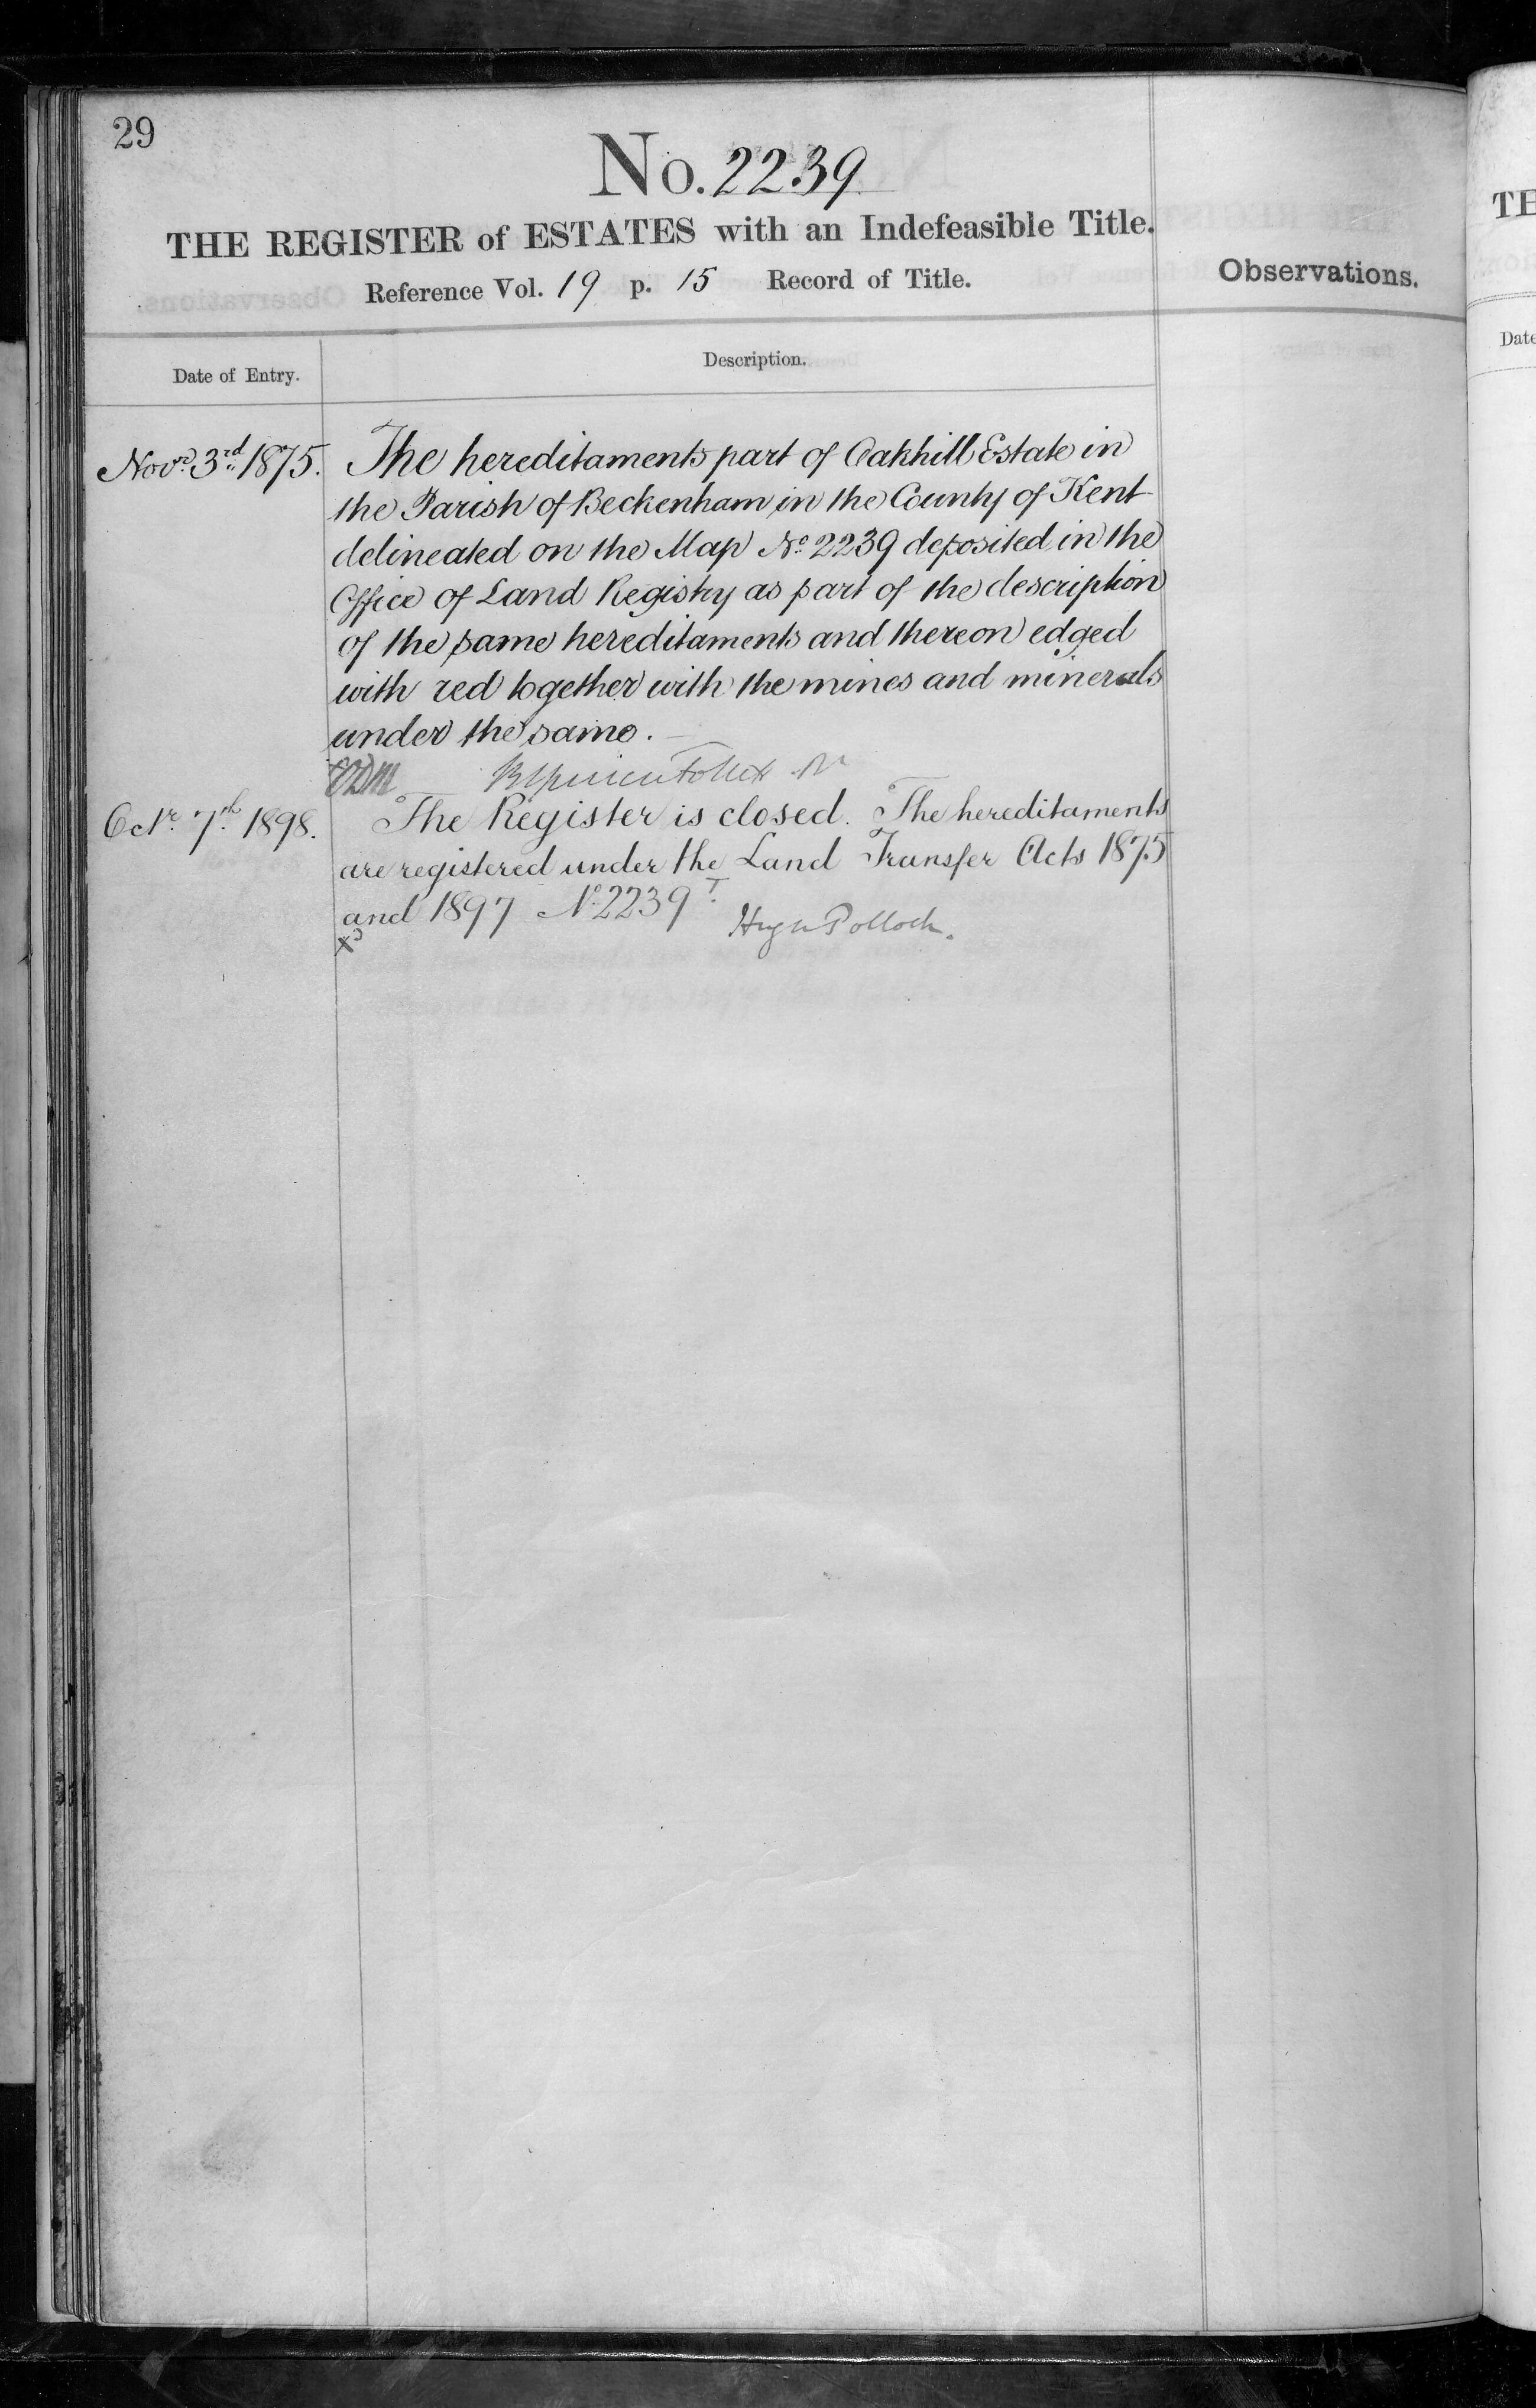 29
No. 2239
THE REGISTER of ESTATES with an Indefeasible Title.
Reference Vol. 19 p. 15 Record of Title.
Observations.
Date of Entry.
Description.
Novr. 3rd 1875.
The hereditaments part of Oakhill Estate in
the Parish of Beckenham in the County of Kent
delineated on the Map No 2239 deposited in the
Office of Land Registry as part of the description
of the same hereditaments and thereon edged
with red together with the mines and minerals
under the same.
Octr. 7th 1898.
The Register is closed. The hereditaments
are registered under the Land Transfer Acts 1875
and 1897 No 2239T.
Hugh Pollock.
TE
Date